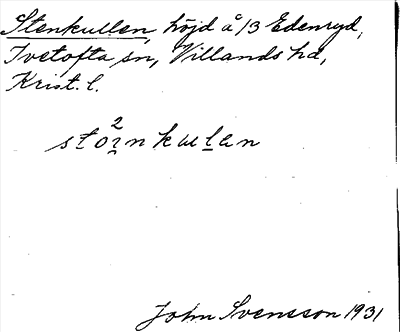 Stenkullen, höjd å 13 Edenryd,
Ivetofta sn, Villands hd,
Krist. l.
2
John Svensson 1931